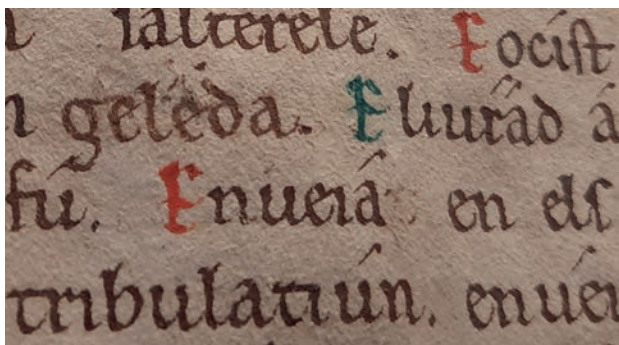 salterele. E ocist
n geleda. E liurád á
fú. Enueiá en els
tribulatiún. enuéi